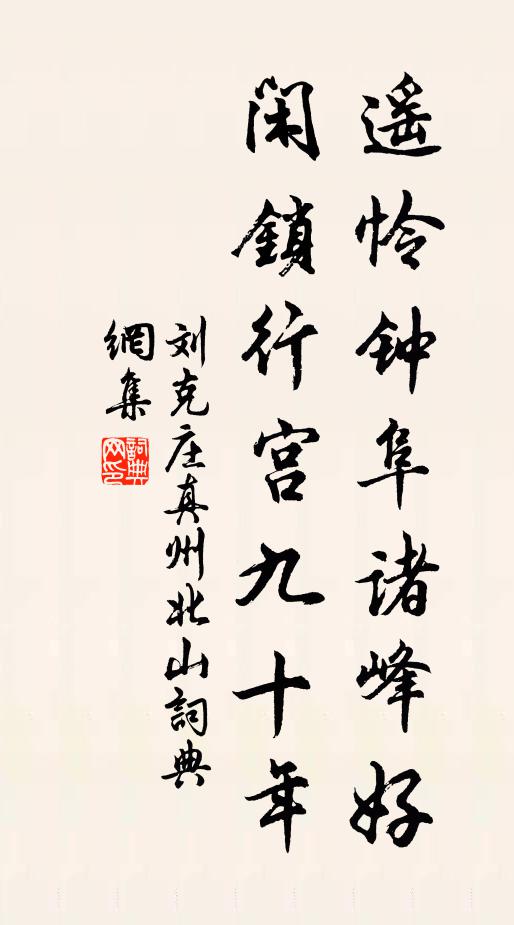 遥怜钟阜诸峰好
闲鎖行宫九十年
刘克庄真州北山詞典
網集
詞典
网印